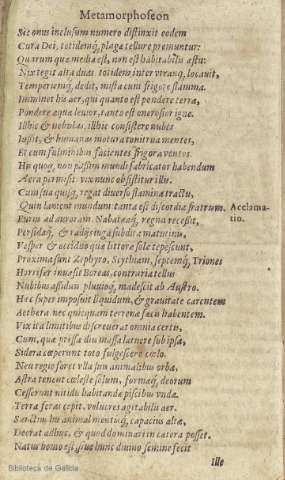 Metamorphoseon
Sic onus inclusum numero distinxit eodem
Cura Dei, totidemq́; plagæ tellure premuntur:
Quarum quæ media est, non est habitabilis æstu:
Nix tegit alta duas totidem inter vtranq; locauit,
Temperiemq́; dedit, mista cum frigore flamma.
Imminet his aer, qui quanto est pondere terræ,
Pondere aquæ leuior, tanto est onerosior igne.
Illic & nebulas, illic consistere nubes
Iussit, & humanas motura tonitrua mentes,
Et cum fulminibus facientes frigora ventos.
His quoq; non passim mundi fabricator habendum
Aera permisit: vix nunc obsistitur illis,
Cum sua quisq; regat diuerso flamina tractu,
Quin lanient mundum tanta est discordia fratrum.
Acclama-
tio.
Eurus ad auroram, Nabatæaq́; regna recessit,
Persidaq́; & radijs iuga subdita matutinis,
Vesper & occiduo quæ littora sole tepescunt,
Proxima sunt Zephyro, Scythiam, septemq́; Triones
Horrifer inuasit Boreas, contraria tellus
Nubibus assiduis pluuioq́; madescit ab Austro.
Hæc super imposuit liquidum, & grauitate carentem
Aethera nec quicquam terrenæ fæcis habentem.
Vix ita limitibus discreuerat omnia certis,
Cum, quæ pressa diu massa latuere sub ipsa,
Sidera cœperunt toto fulgescere cœlo.
Neu regio foret vlla suis animalibus orba,
Astra tenent cœleste solum, formæq́; deorum
Cesserunt nitidis habitandæ piscibus vndæ.
Terra feras cepit, volucres agitabilis aer.
Sanctius his animal mentisq́; capacius altæ,
Deerat adhuc, & quod dominari in cætera posset.
Natus homo est, siue hunc diuino semine fecit
Ille
Biblioteca de Galicia